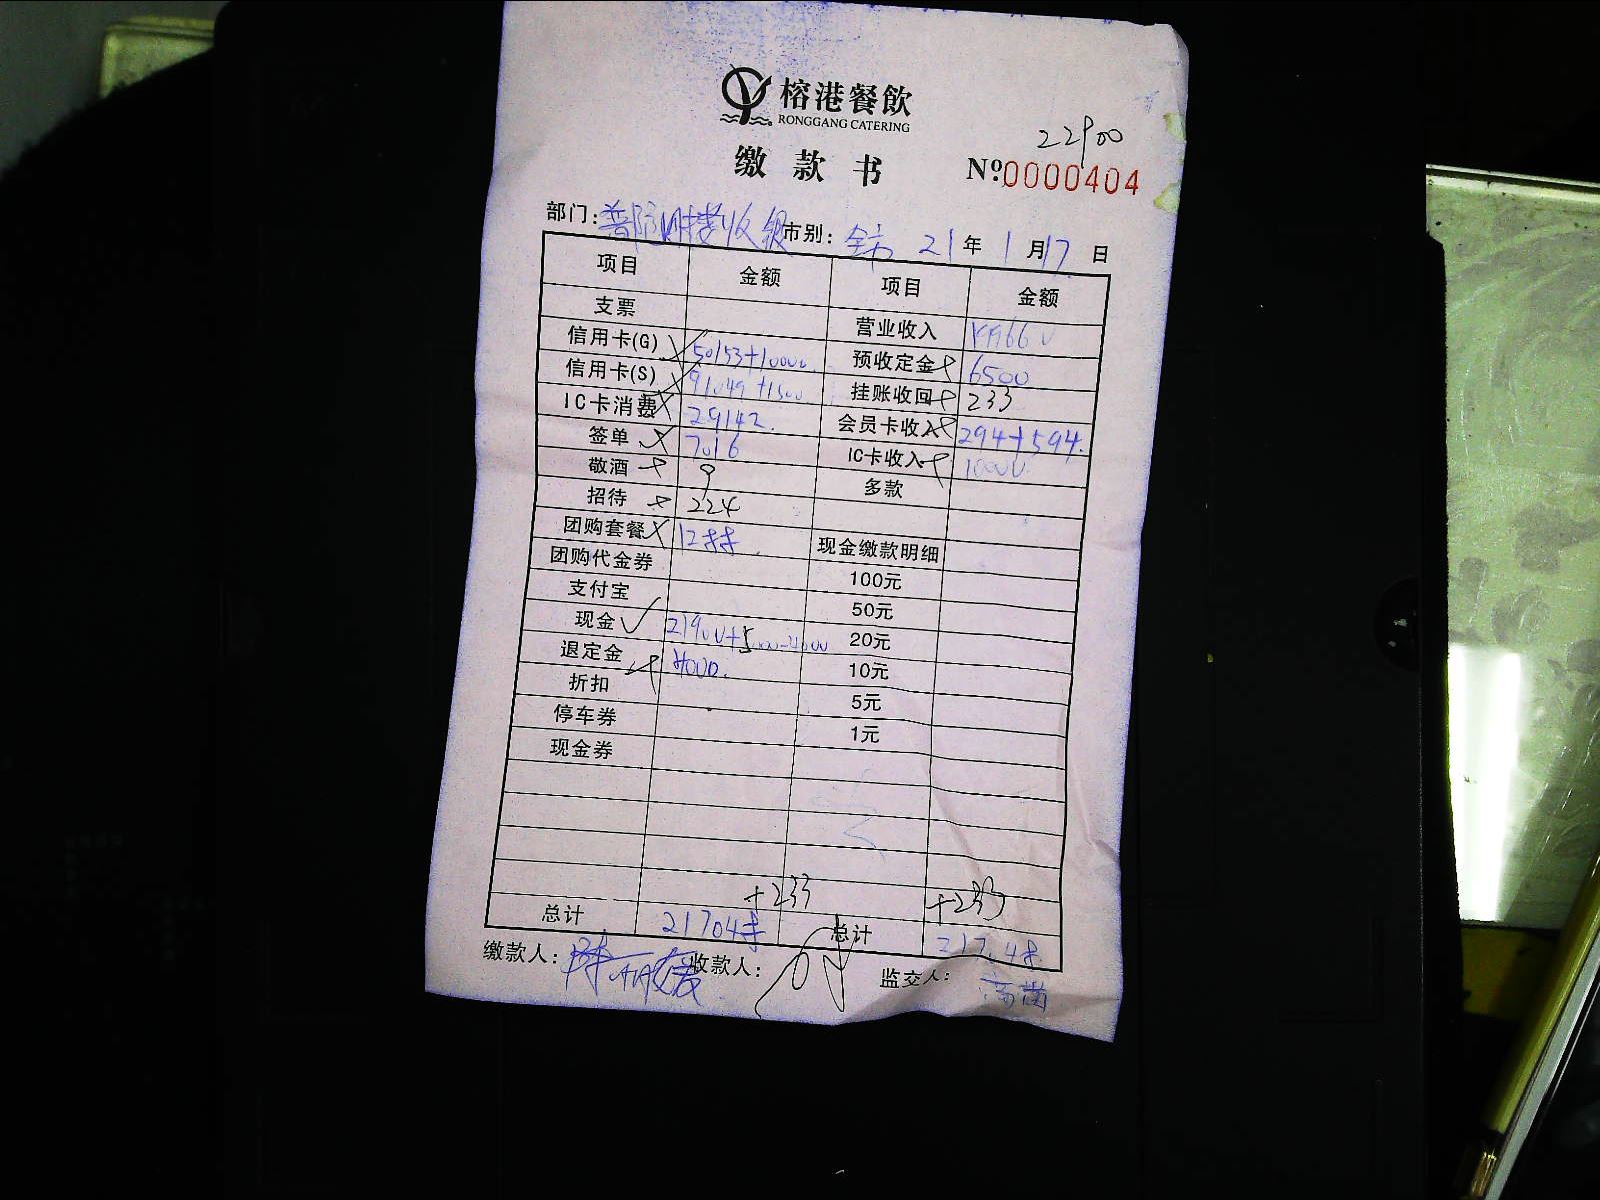 榕港餐飲
RONGGANG CATERING
22900
缴款书 №0000404
部门: 市别: 全市 21年1月17日
项目 金额 项目 金额
支票 营业收入
信用卡(G) 50153+10000 预收定金 6500
信用卡(S) 91049+1500 挂账收回 233
IC卡消费 29142. 会员卡收入 294+594.
签单 7016 IC卡收入 10000
敬酒 9 多款
招待 224
团购套餐 现金缴款明细
团购代金券 100元
支付宝 50元
现金 20元
退定金 4000. 10元
折扣 5元
停车券 1元
现金券
+233 +233
总计 总计
缴款人: 收款人: 监交人: